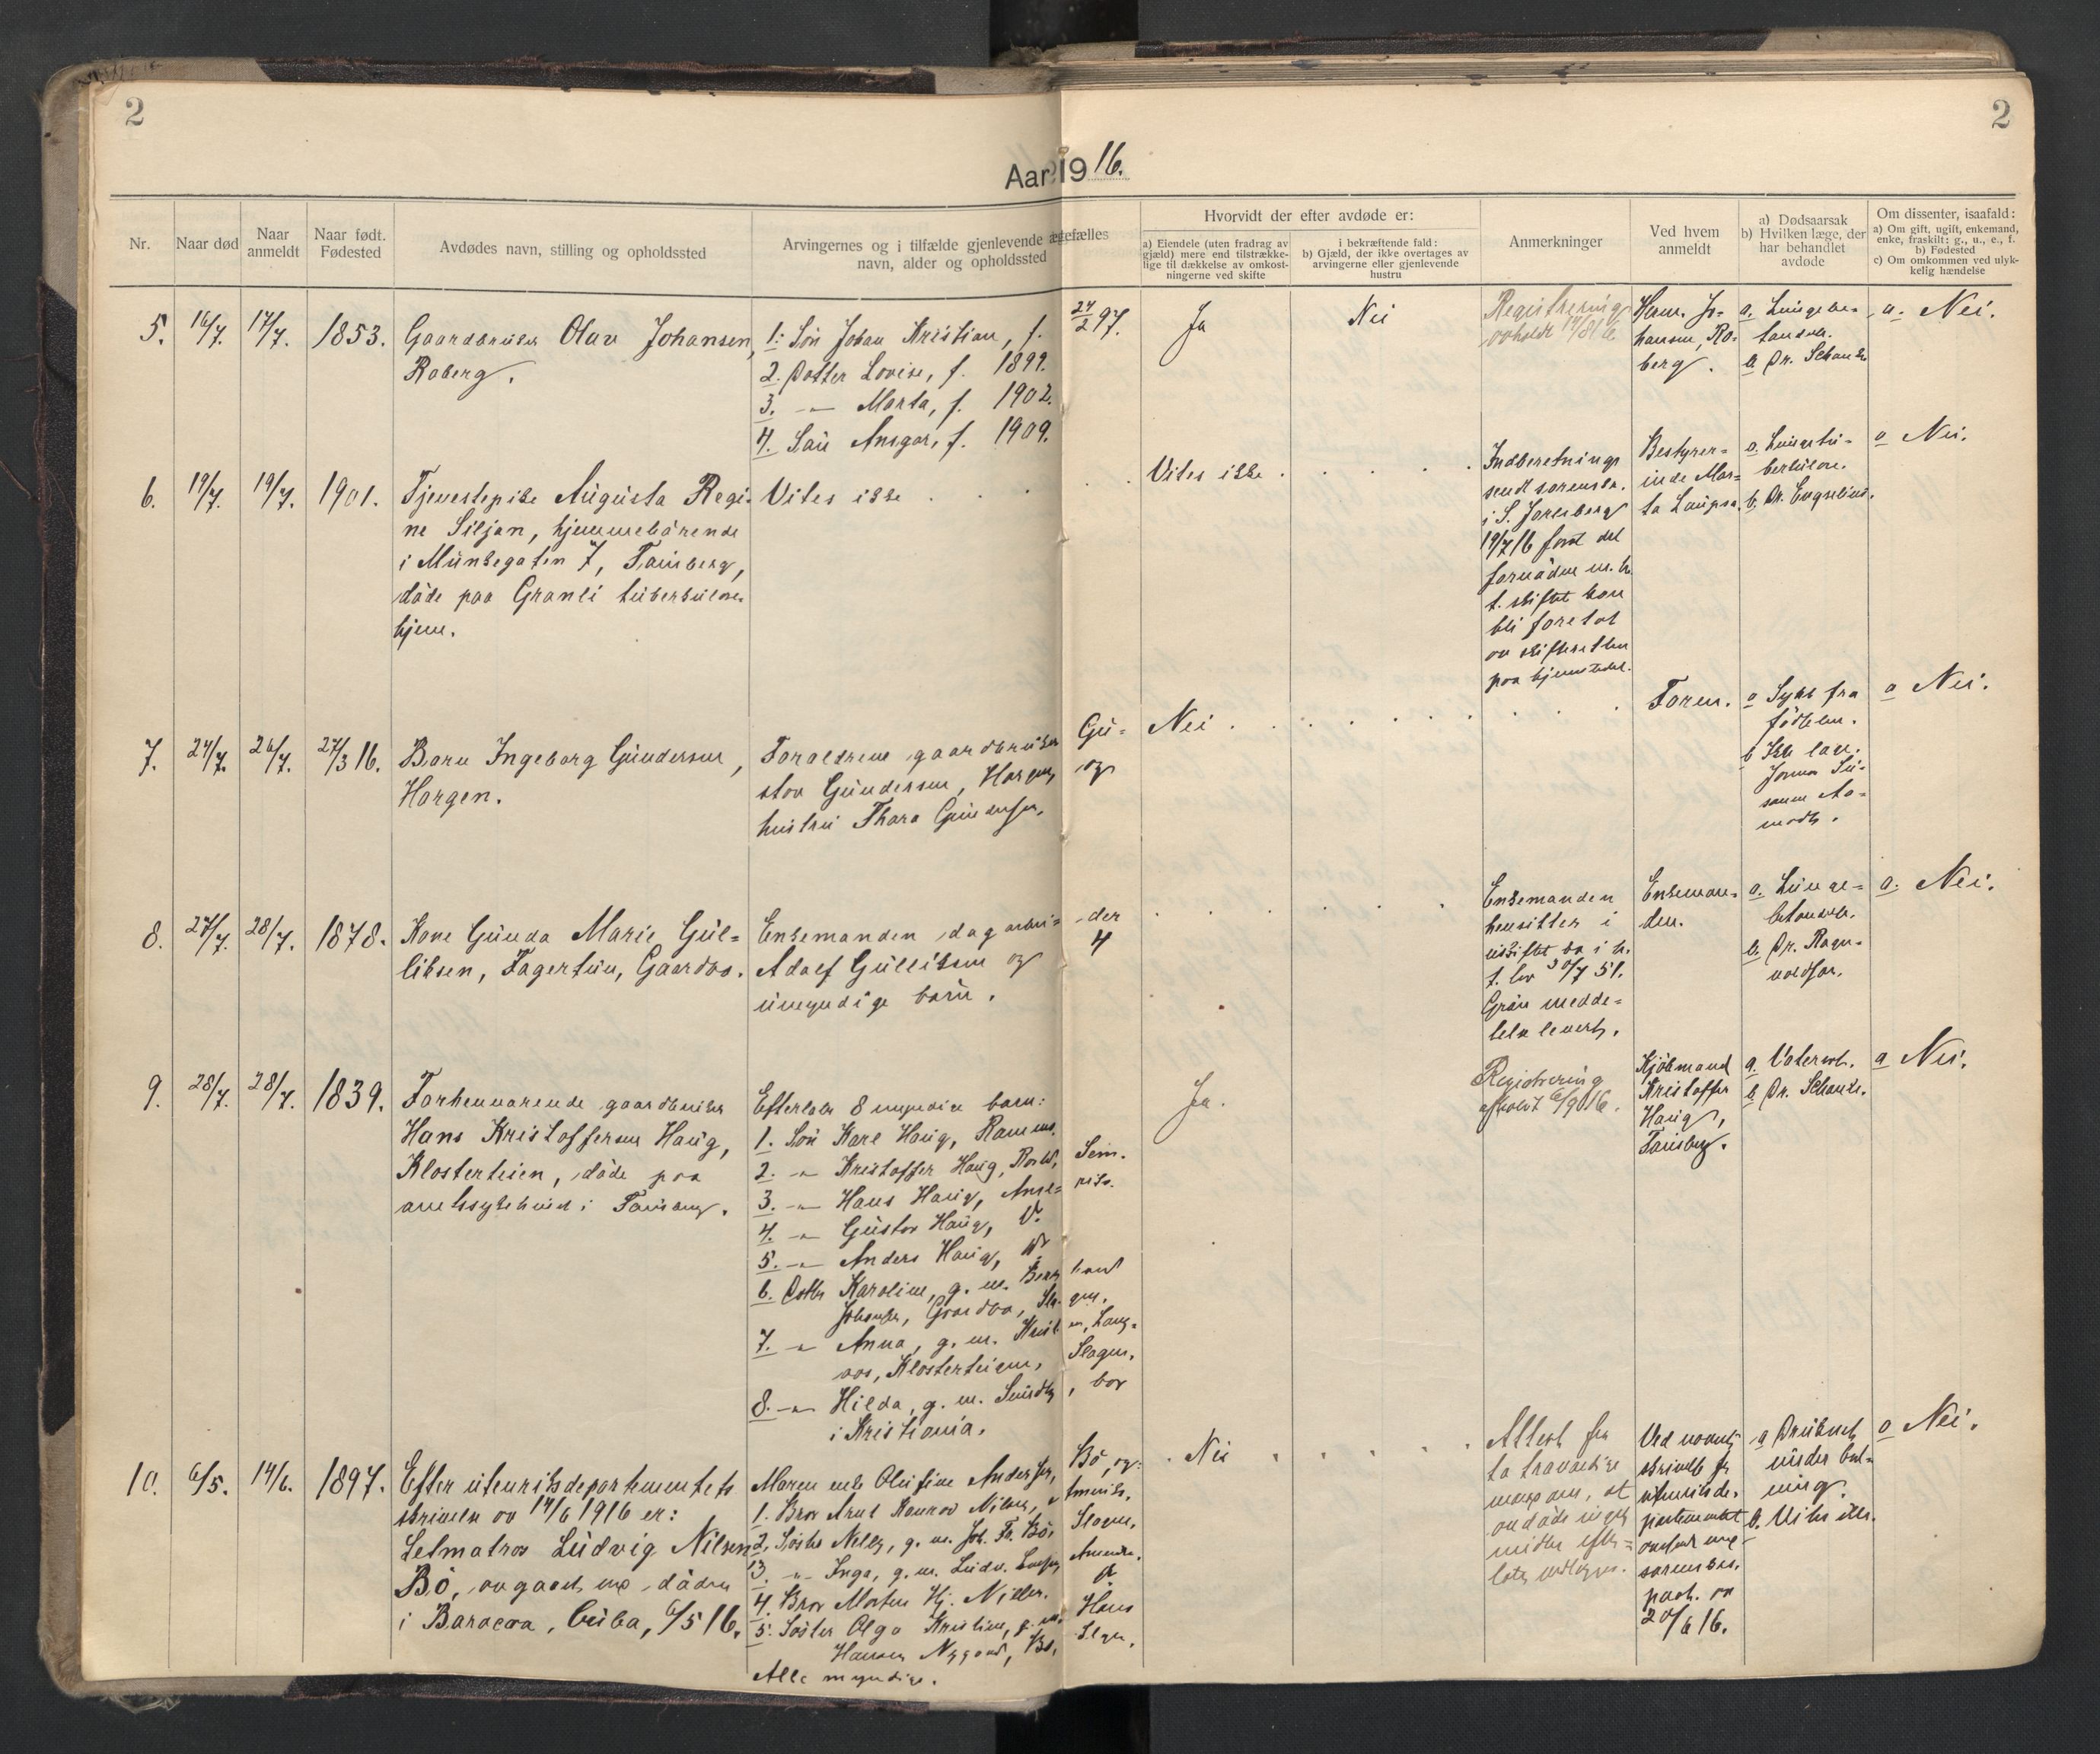 2
2
Aar 1916.
Nr.
Naar død
Naar anmeldt
Naar født. Fødested
Avdødes navn, stilling og opholdssted
Arvingernes og i tilfælde gjenlevende ægtefælles
navn, alder og opholdssted
Hvorvidt der efter avdøde er:
a) Eiendele (uten fradrag av
gjæld) mere end tilstrække-
lige til dækkelse av omkost-
ningerne ved skifte
i bekræftende fald:
b) Gjæld, der ikke overtages av
arvingerne eller gjenlevende
hustru
Anmerkninger
Ved hvem
anmeldt
a) Dødsaarsak
b) Hvilken læge, der
har behandlet
avdøde
Om dissenter, isaafald:
a) Om gift, ugift, enkemand,
enke, fraskilt: g., u., e., f.
b) Fødested
c) Om omkommen ved ulyk-
kelig hændelse
5. 16/7. 17/7. 1853.
Gaardbruker Olav Johansen,
Roberg.
1. Søn Johan Kristian, f. 24/2 97.
2. Datter Lovise, f. 1899.
3. -"- Marta, f. 1902.
4. Søn Ansgar, f. 1909.
Ja
Nei
Registrering
avholdt
Herm. Jo-
hansen, Ro-
berg.
a. Lungebe-
tændels.
b. Dr. Schanke
a. Nei.
6. 19/7. 19/7. 1901.
Tjenestepike Augusta Regi-
ne Siljan, hjemmehørende
i Munkegaten 7, Tønsberg,
døde paa Granli tuberkulose-
hjem.
Vites ikke
Vites ikke
Indberetning
sendt sorenskr.
i S. Jarlsberg
19/7 16 forat det
fornødne m.h.
t. skiftet kan
bli foretat
av skifteretten
paa hjemstedet.
Bestyrer-
inde Mar-
ta
a. Lungetu-
berkulose.
b. Dr. Engelius.
a Nei.
7. 24/7. 26/7. 27/3 16.
Barn Ingeborg Gundersen,
Horgen.
Forældrene gaardbruker Gu-
stav Gundersen, Horgen, og
hustru Thora Gundersen.
Nei
Foren.
a Syk fra
fødselen.
b Ikke læge.
Jormor Su-
sanne Aa-
modt.
a Nei.
8. 27/7. 28/7. 1878.
Kone Gunda Marie Gul-
liksen, Fagertun, Gaardbo.
Enkemanden dagarbei-der
Adolf Gulliksen og 4
umyndige barn.
Enkemanden
hensitter i
uskiftet bo i h.
t. lov 30/7 51.
Grøn medde-
lelse levert.
Enkeman-
den.
a. Lunge-
betændels.
b. Dr. Ragn-
valdsen.
a. Nei.
9. 28/7. 28/7. 1839.
Forhenværende gaardbruker
Hans Kristoffersen Haug,
Klosterteien, døde paa
amtssykehuset i Tønsberg.
Efterlater 8 myndige barn:
1. Søn Karl Haug, Ramnes.
2. -"- Kristoffer Haug, Sem.
3. -"- Hans Haug,
4. -"- Gustav Haug,
5. -"- Anders Haug,
6. Datter Karoline, g. m.
Gaardbo, Slagen.
7. -"- Anna, g. m.
aas, Klosterteigen, Slagen,
8. -"- Hilda, g. m. Sundby, bor
i Kristiania.
Ja.
Registrering
afholdt 6/9 016.
Kjøbmand
Kristoffer
Haug,
Tønsberg.
b Dr. Schanke.
a Nei.
10. 6/5. 14/6. 1897.
Efter utenriksdepartementets
skrivelse av 14/6 1916 er:
Letmatros Ludvig Nilsen
Bø, avgaaet ved døden
i Baracoa, Cuba, 6/5 16.
Moren enke Olufine Andersen, Bø, og:
1. Bror Arnt Konrad Nilsen,
2. Søster Nelly, g. m. Joh. Fr. Bø, Slagen,
3. -"- Inga, g. m. Ludv.
4. Bror Morten Hj. Nilsen.
5. Søster Olga Kristine, g. m. Hans
Hansen Nygaard, Bø, Slagen.
Alle myndige.
Nei
Attest fra
to troværdige
mænd om, at
avdøde intet
midler efter-
later vedlægges.
Ved
skrivelse fra
utenriksde-
partementet
20/6 16.
a Druknet
under bad-
ning.
b. Vites ikke.
a Nei.